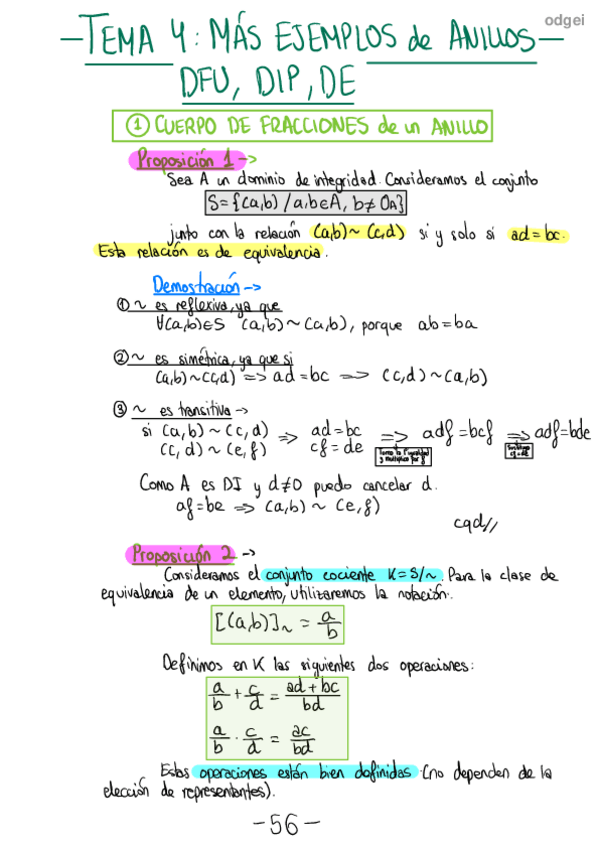 odgei
—TEMA 4: MÁS EJEMPLOS de ANILLOS—
DFU, DIP, DE
① CUERPO DE FRACCIONES de un ANILLO
Proposición 1 →
Sea A un dominio de integridad. Consideramos el conjunto
S={(a,b) / a,b∈A, b≠0_A}
junto con la relación (a,b)~(c,d) si y solo si ad=bc.
Esta relación es de equivalencia.
Demostración →
① ~ es reflexiva, ya que
∀(a,b)∈S (a,b)~(a,b), porque ab=ba
② ~ es simétrica, ya que si
(a,b)~(c,d) ⇒ ad=bc ⇒ (c,d)~(a,b)
③ ~ es transitiva →
si (a,b)~(c,d) ⇒ ad=bc ⇒ adf=bcf ⇒ adf=bde
(c,d)~(e,f) cf=de
Tomo la 1ª igualdad y multiplico por f
Sustituyo cf=de
Como A es DI y d≠0 puedo cancelar d.
af=be ⇒ (a,b)~(e,f)
cqd//
Proposición 2 →
Consideramos el conjunto cociente K=S/~. Para la clase de
equivalencia de un elemento, utilizaremos la notación:
[(a,b)]~ = a/b
Definimos en K las siguientes dos operaciones:
a/b + c/d = ad+bc/bd
a/b · c/d = ac/bd
Estas operaciones están bien definidas (no dependen de la
elección de representantes).
-56-